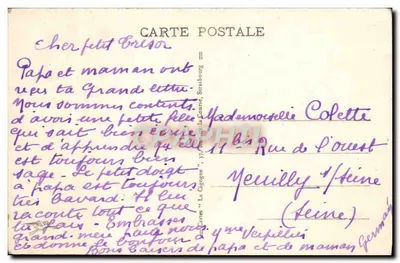 CARTE POSTALE
Cher petit Trésor
Papa et maman ont
reçu ta Grande lettre.
Nous sommes contents
d'avoir une petite fille
qui sait bien écrire
et d'apprendre qu'elle
est toujours bien
sage. Le petit doigt
à papa est toujours
très bavard. Il lui
raconte tout ce que
tu fais. Embrasses
grand-mère pour nous
et donne le bonjour à Mme
Bons baisers de papa et de maman
Germain
Mademoiselle Colette
11 bis Rue de l'ouest
Neuilly s/Seine
(Seine)